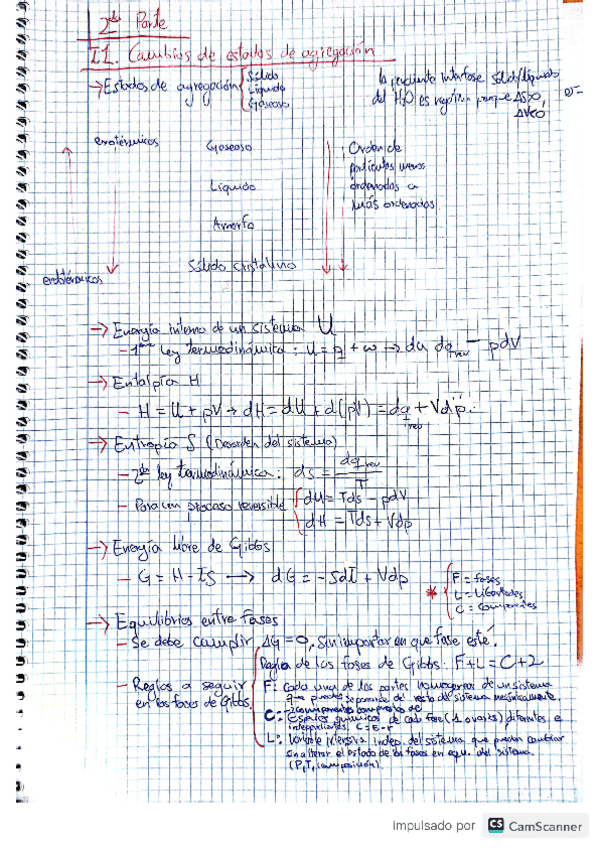 2da Parte
I1. Cambios de estados de agregación
→ Estados de agregación { Sólido
Líquido
Gaseoso
la pendiente interfase sólido/líquido
del H2O es negativa porque ΔS>0,
ΔV<0
exotérmicos
Gaseoso
Líquido
Amorfo
Sólido cristalino
endotérmicos
Orden de
partículas menos
ordenadas a
más ordenadas
→ Energía interna de un sistema U
- 1era ley termodinámica: U = q + w → du dqrev - pdV
→ Entalpía H
- H = U + pV → dH = dU + d(pV) = dqrev + Vdp.
→ Entropía S (Desorden del sistema)
- 2da ley termodinámica: ds = dqrev / T
- Para un proceso reversible { dU = Tds - pdV
dH = Tds + Vdp
→ Energía libre de Gibbs
- G = H - TS → dG = -SdT + Vdp
* { F = fases
L = Libertades
C = componentes
→ Equilibrios entre fases
- Se debe cumplir ΔG = 0, sin importar en que fase esté.
- Reglas a seguir
en las fases de Gibbs
Regla de las fases de Gibbs: F+L = C+2
F: Cada una de las partes homogéneas de un sistema
que puedes separarse del resto del sistema mecánicamente.
C: Especies químicas de cada fase (1 o varias) diferentes e
independientes. C = E - r
L: Variable intensiva indep. del sistema que puedan cambiar
sin alterar el estado de las fases en equ. del sistema.
(P, T, composición)
Impulsado por CS CamScanner